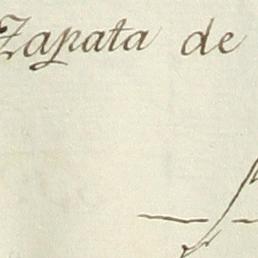 Zapata de